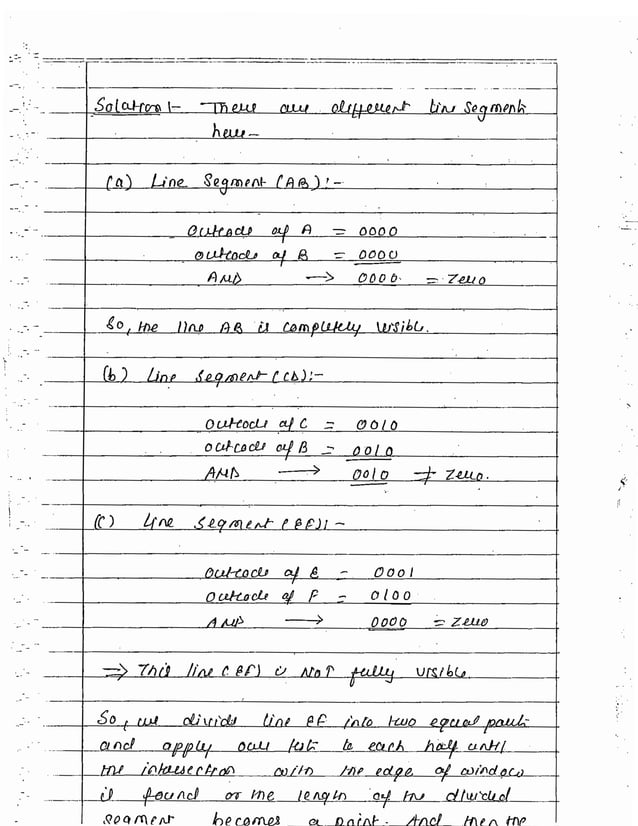 Solution:- There are different line segments
here-
(a) Line Segment (AB):-
Outcode of A = 0000
outcode of B = 0000
AND → 0000 = Zero
So, the line AB is completely visible.
(b) Line Segment (CD):-
Outcode of C = 0010
outcode of B = 0010
AND → 0010 ≠ Zero.
(c) Line Segment (EF):-
Outcode of E = 0001
Outcode of F = 0100
AND → 0000 = Zero
⇒ This line (EF) is NOT fully visible.
So, we divide line EF into two equal parts
and apply our test to each half until
the intersection with the edge of window
is found or the length of the divided
segment becomes a point. And then the